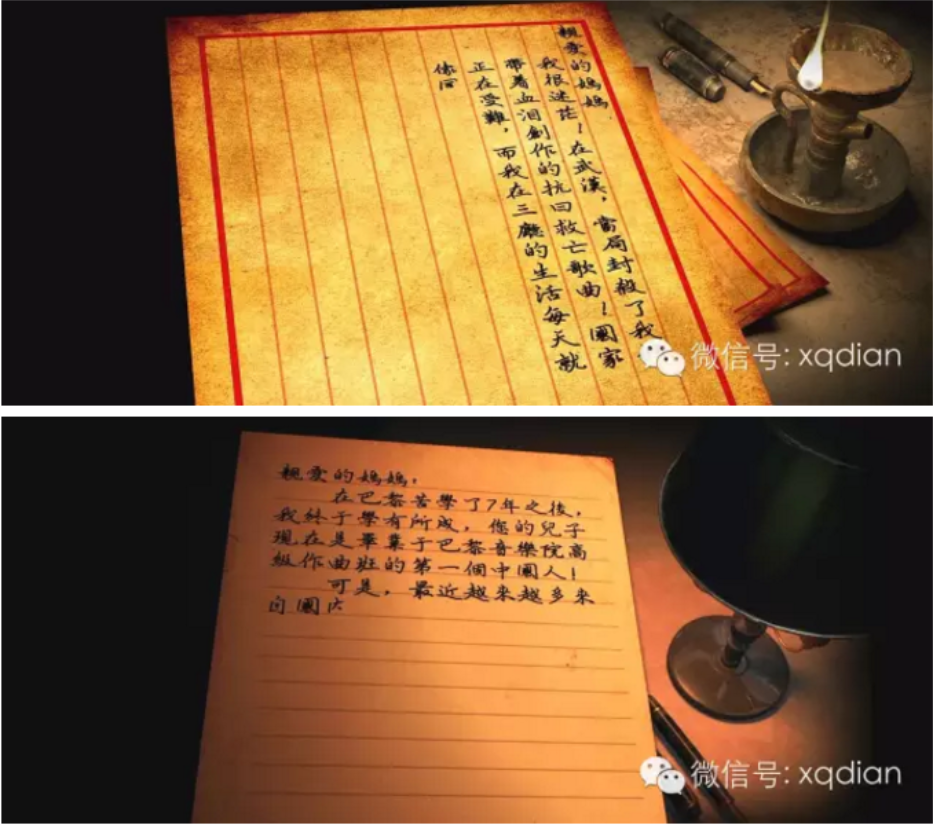 親愛的媽媽
我很迷茫！在武漢，當局封殺了我
帶着血泪創作的抗日救亡歌曲！國家
正在受難，而我在三廳的生活每天就
像
微信号: xqdian
親愛的媽媽，
在巴黎苦學了7年之後，
我終于學有所成，您的兒子
現在是畢業于巴黎音樂院高
級作曲班的第一個中國人！
可是，最近越來越多來
自國内
微信号: xqdian